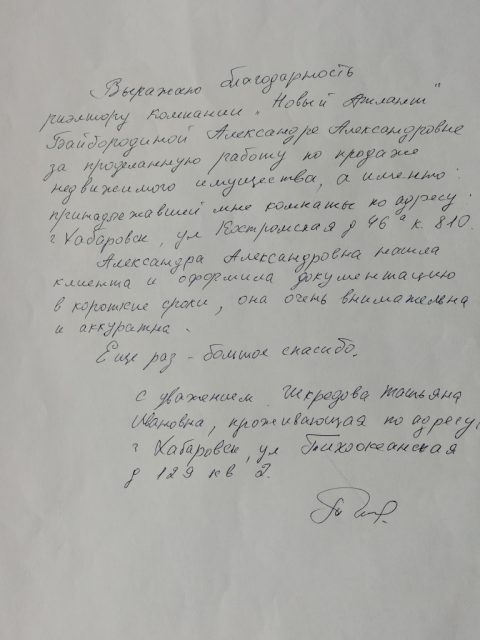 Выражаю благодарность
риэлтору компании „Новый Атлант"
Байбородиной Александре Александровне
за проделанную работу по продаже
недвижимого имущества, а именно:
принадлежавшей мне комнаты по адресу:
г Хабаровск, ул Костромская д 46 а к. 810.
Александра Александровна нашла
клиента и оформила документацию
в короткие сроки, она очень внимательна
и аккуратна.
Еще раз - большое спасибо.
с уважением Шкредова Татьяна
Ивановна, проживающая по адресу,
г Хабаровск, ул Тихоокеанская
д 129 кв 2.